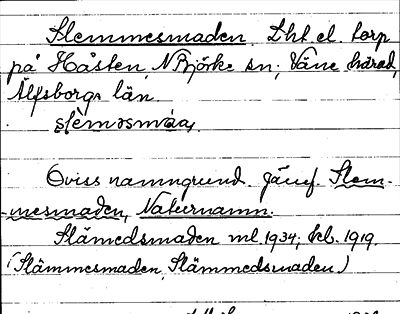 Slemmesmaden. Lht el. torp
på Håsten, N Björke sn, Väne härad,
Älfsborgs län.
Oviss namngrund. Jämf. Slem-
mesmaden, Naturnamn.
Slämedsmaden ml. 1934; kb. 1919.
(Slämmesmaden, Slämmedsmaden)